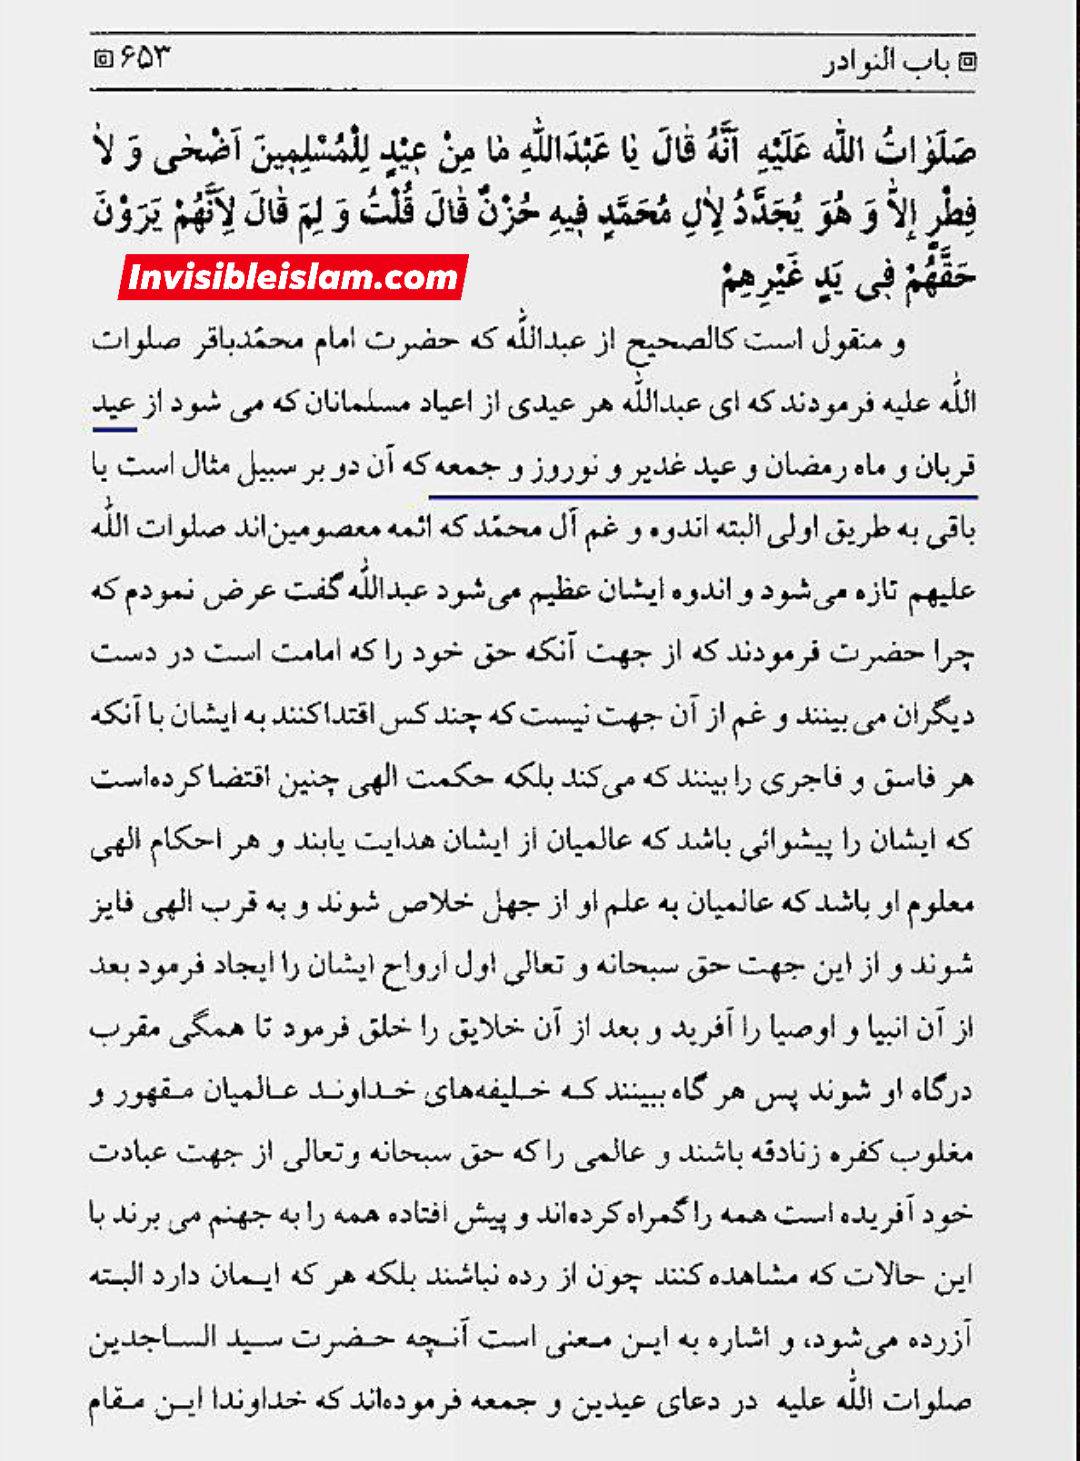 باب النوادر ۶۵۳
صَلَوٰاتُ اللّٰه عَلَيْهِ اَنَّهُ قٰالَ يٰا عَبْدَاللّٰهِ مٰا مِنْ عِيْدٍ لِلْمُسْلِمِينَ اَضْحٰى وَ لاٰ
فِطْرٍ إِلاّٰ وَ هُوَ يُجَدَّدُ لِاٰلِ مُحَمَّدٍ فِيهِ حُزْنٌ قٰالَ قُلْتُ وَ لِمَ قٰالَ لِاَنَّهُمْ يَرَوْنَ
Invisibleislam.com
حَقَّهُمْ فِى يَدِ غَيْرِهِمْ
و منقول است کالصحیح از عبداللّٰه که حضرت امام محمّدباقر صلوات
اللّٰه علیه فرمودند که ای عبداللّٰه هر عیدی از اعیاد مسلمانان که می شود از عید
قربان و ماه رمضان و عید غدیر و نوروز و جمعه که آن دو بر سبیل مثال است یا
باقی به طریق اولی البته اندوه و غم آل محمّد که ائمه معصومین‌اند صلوات اللّٰه
علیهم تازه می‌شود و اندوه ایشان عظیم می‌شود عبداللّٰه گفت عرض نمودم که
چرا حضرت فرمودند که از جهت آنکه حق خود را که امامت است در دست
دیگران می‌بینند و غم از آن جهت نیست که چند کس اقتدا کنند به ایشان با آنکه
هر فاسق و فاجری را بینند که می‌کند بلکه حکمت الهی چنین اقتضا کرده‌است
که ایشان را پیشوائی باشد که عالمیان از ایشان هدایت یابند و هر احکام الهی
معلوم او باشد که عالمیان به علم او از جهل خلاص شوند و به قرب الهی فایز
شوند و از این جهت حق سبحانه و تعالی اول ارواح ایشان را ایجاد فرمود بعد
از آن انبیا و اوصیا را آفرید و بعد از آن خلایق را خلق فرمود تا همگی مقرب
درگاه او شوند پس هر گاه ببینند که خلیفه‌های خداوند عالمیان مقهور و
مغلوب کفره زنادقه باشند و عالمی را که حق سبحانه وتعالی از جهت عبادت
خود آفریده است همه را گمراه کرده‌اند و پیش افتاده همه را به جهنم می برند با
این حالات که مشاهده کنند چون از رده نباشند بلکه هر که ایمان دارد البته
آزرده می‌شود، و اشاره به این معنی است آنچه حضرت سید الساجدین
صلوات اللّٰه علیه در دعای عیدین و جمعه فرموده‌اند که خداوندا این مقام